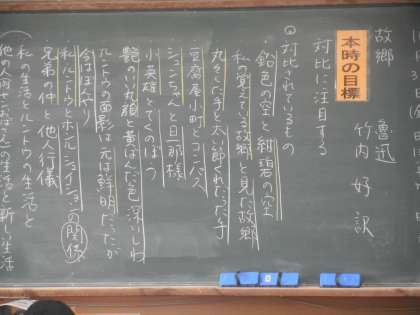 故郷　魯迅
竹内好訳
本時の目標
対比に注目する
対比されているもの
鉛色の空と紺碧の空
私の覚えている故郷と見た故郷
丸々した手と太い節くれだった手
豆腐屋小町とコンパス
シュンちゃんと旦那様
小英雄とでくのぼう
艶のいい丸顔と黄ばんだ色 深いしわ
ルントウの面影は元は鮮明だったが
今はぼんやり
私 ルントウとホンル シュイションの関係
兄弟の仲と他人行儀
私の生活とルントウの生活と
他の人
の生活と新しい生活